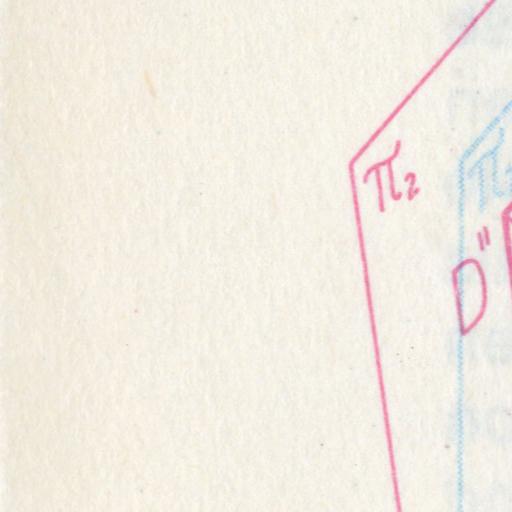 π₂
π
D"